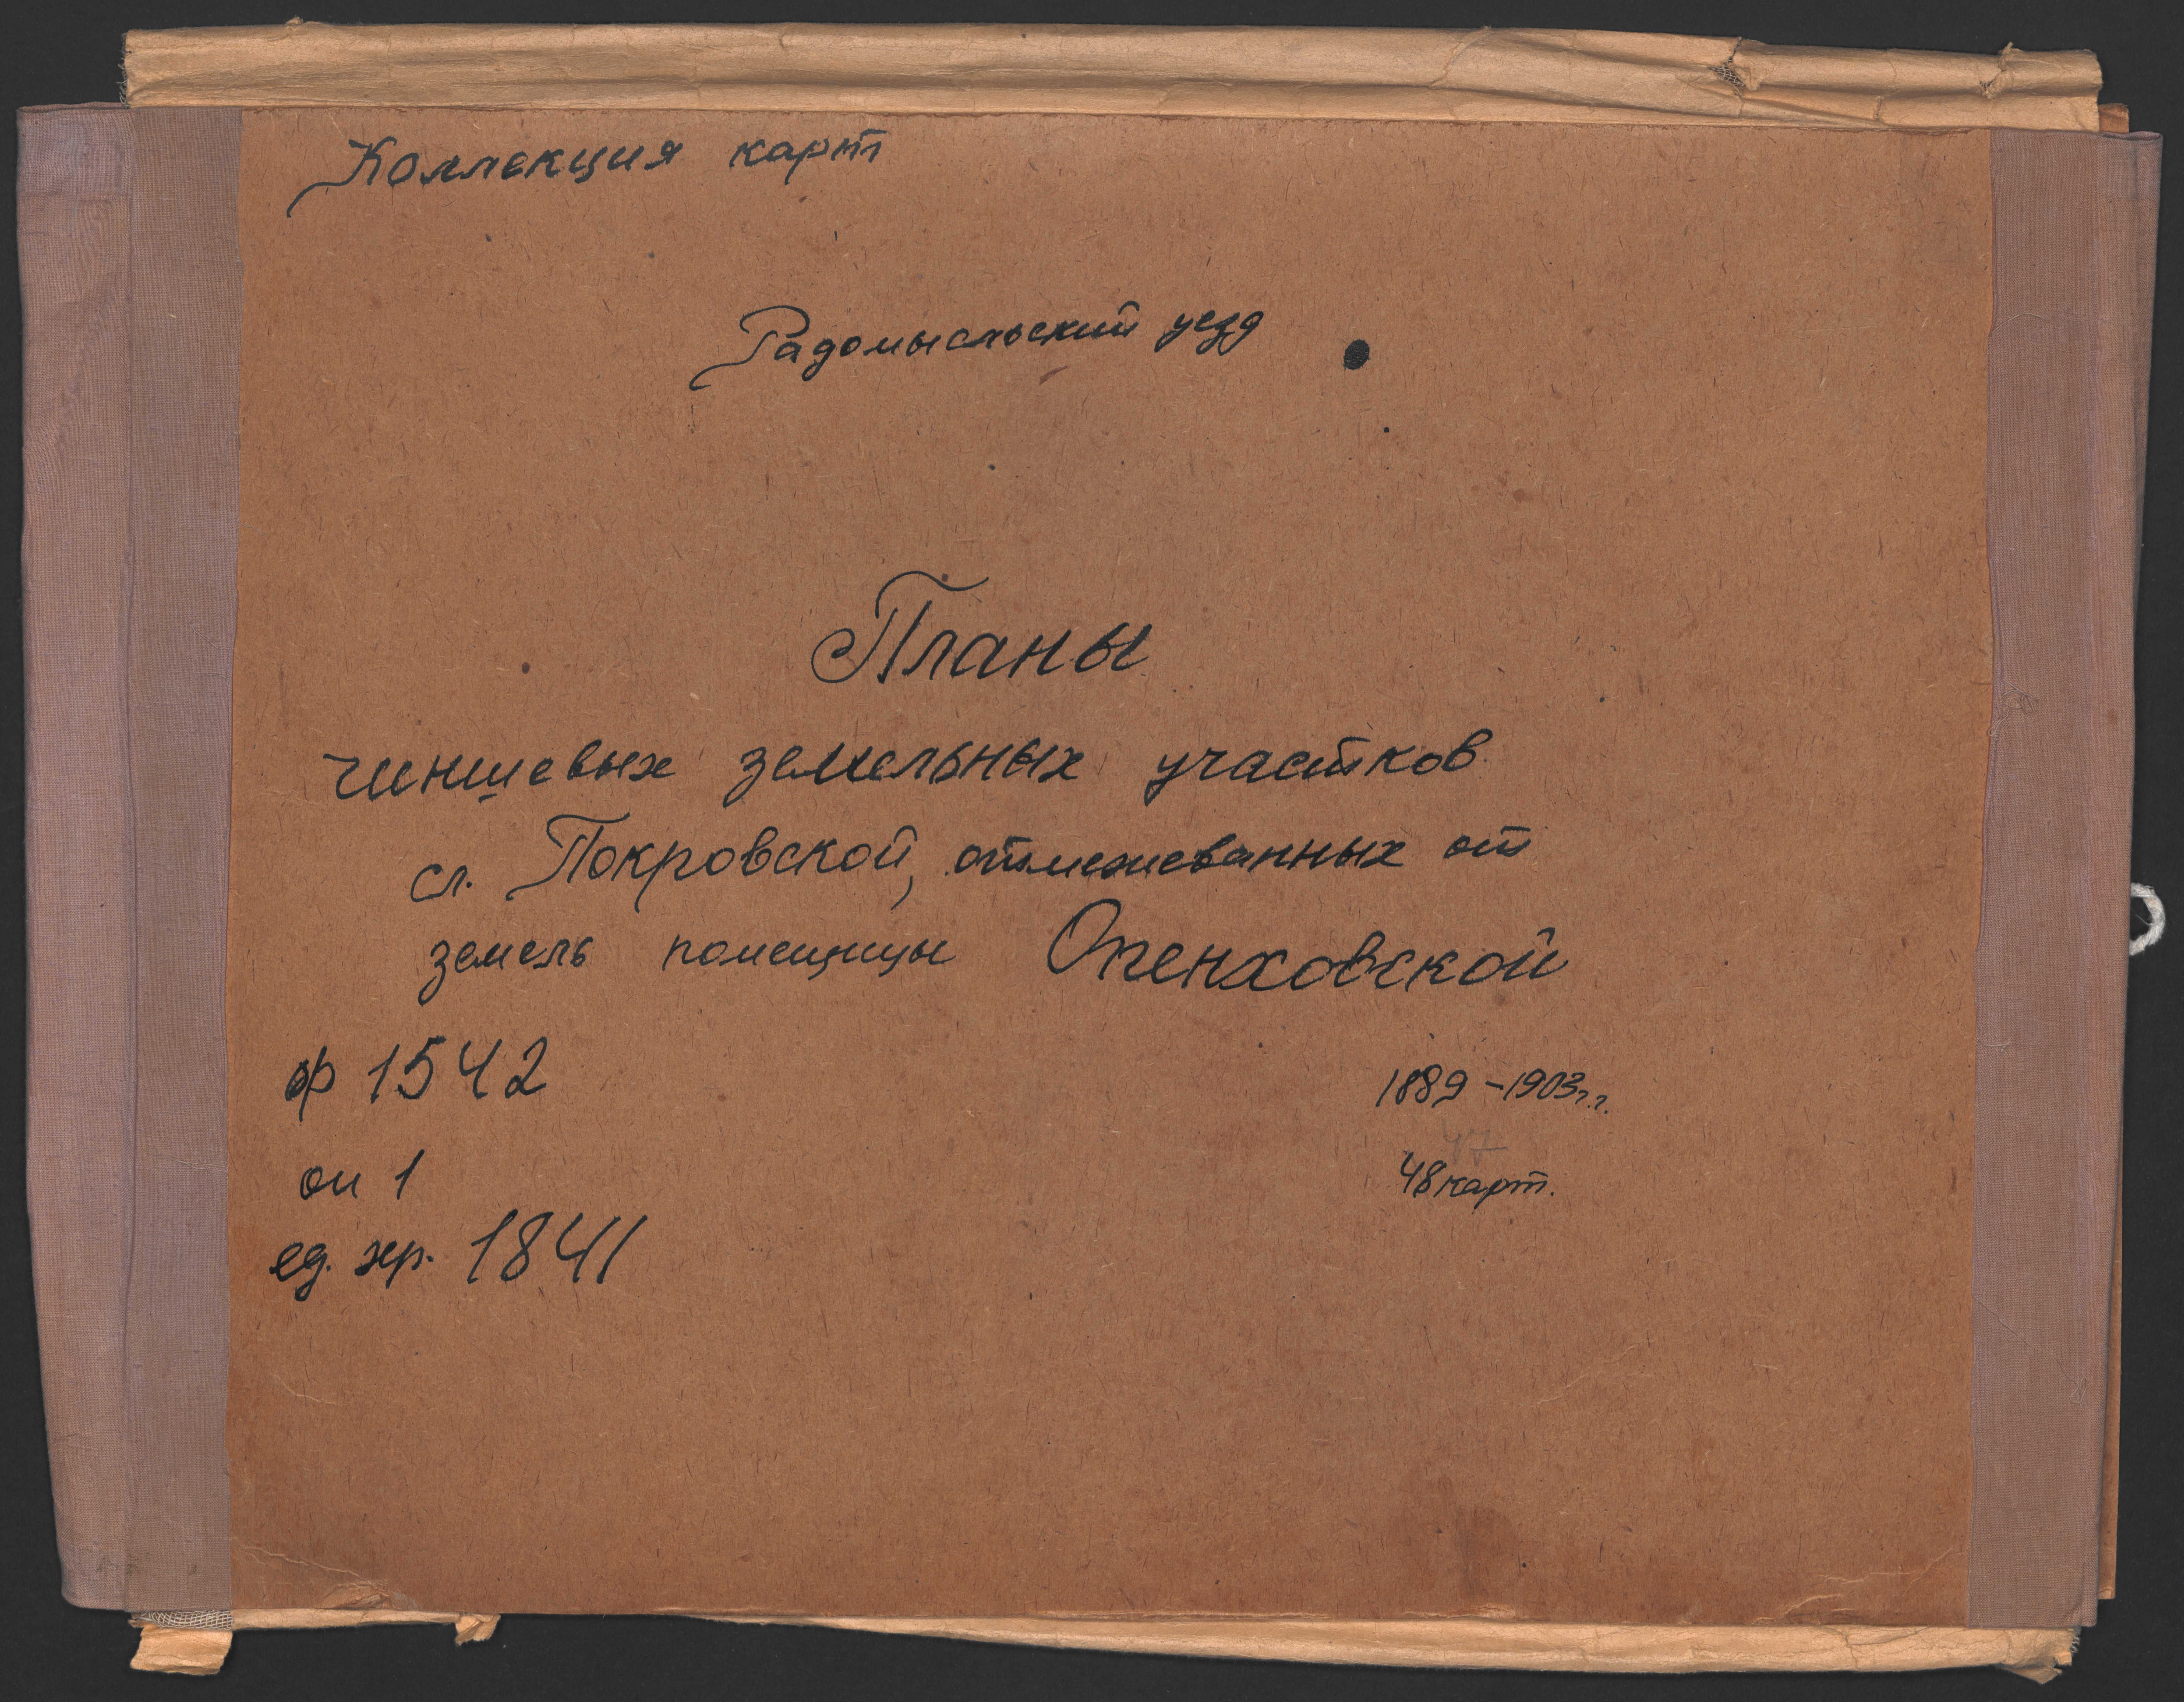 Коллекция карт
Радомысльский уезд
Планы
чиншевых земельных участков
сл. Покровской, отмежеванных от
земель помещицы Опенховской
ф 1542
1889 – 1903 г.г.
47
оп 1
48 карт.
ед. хр. 1841